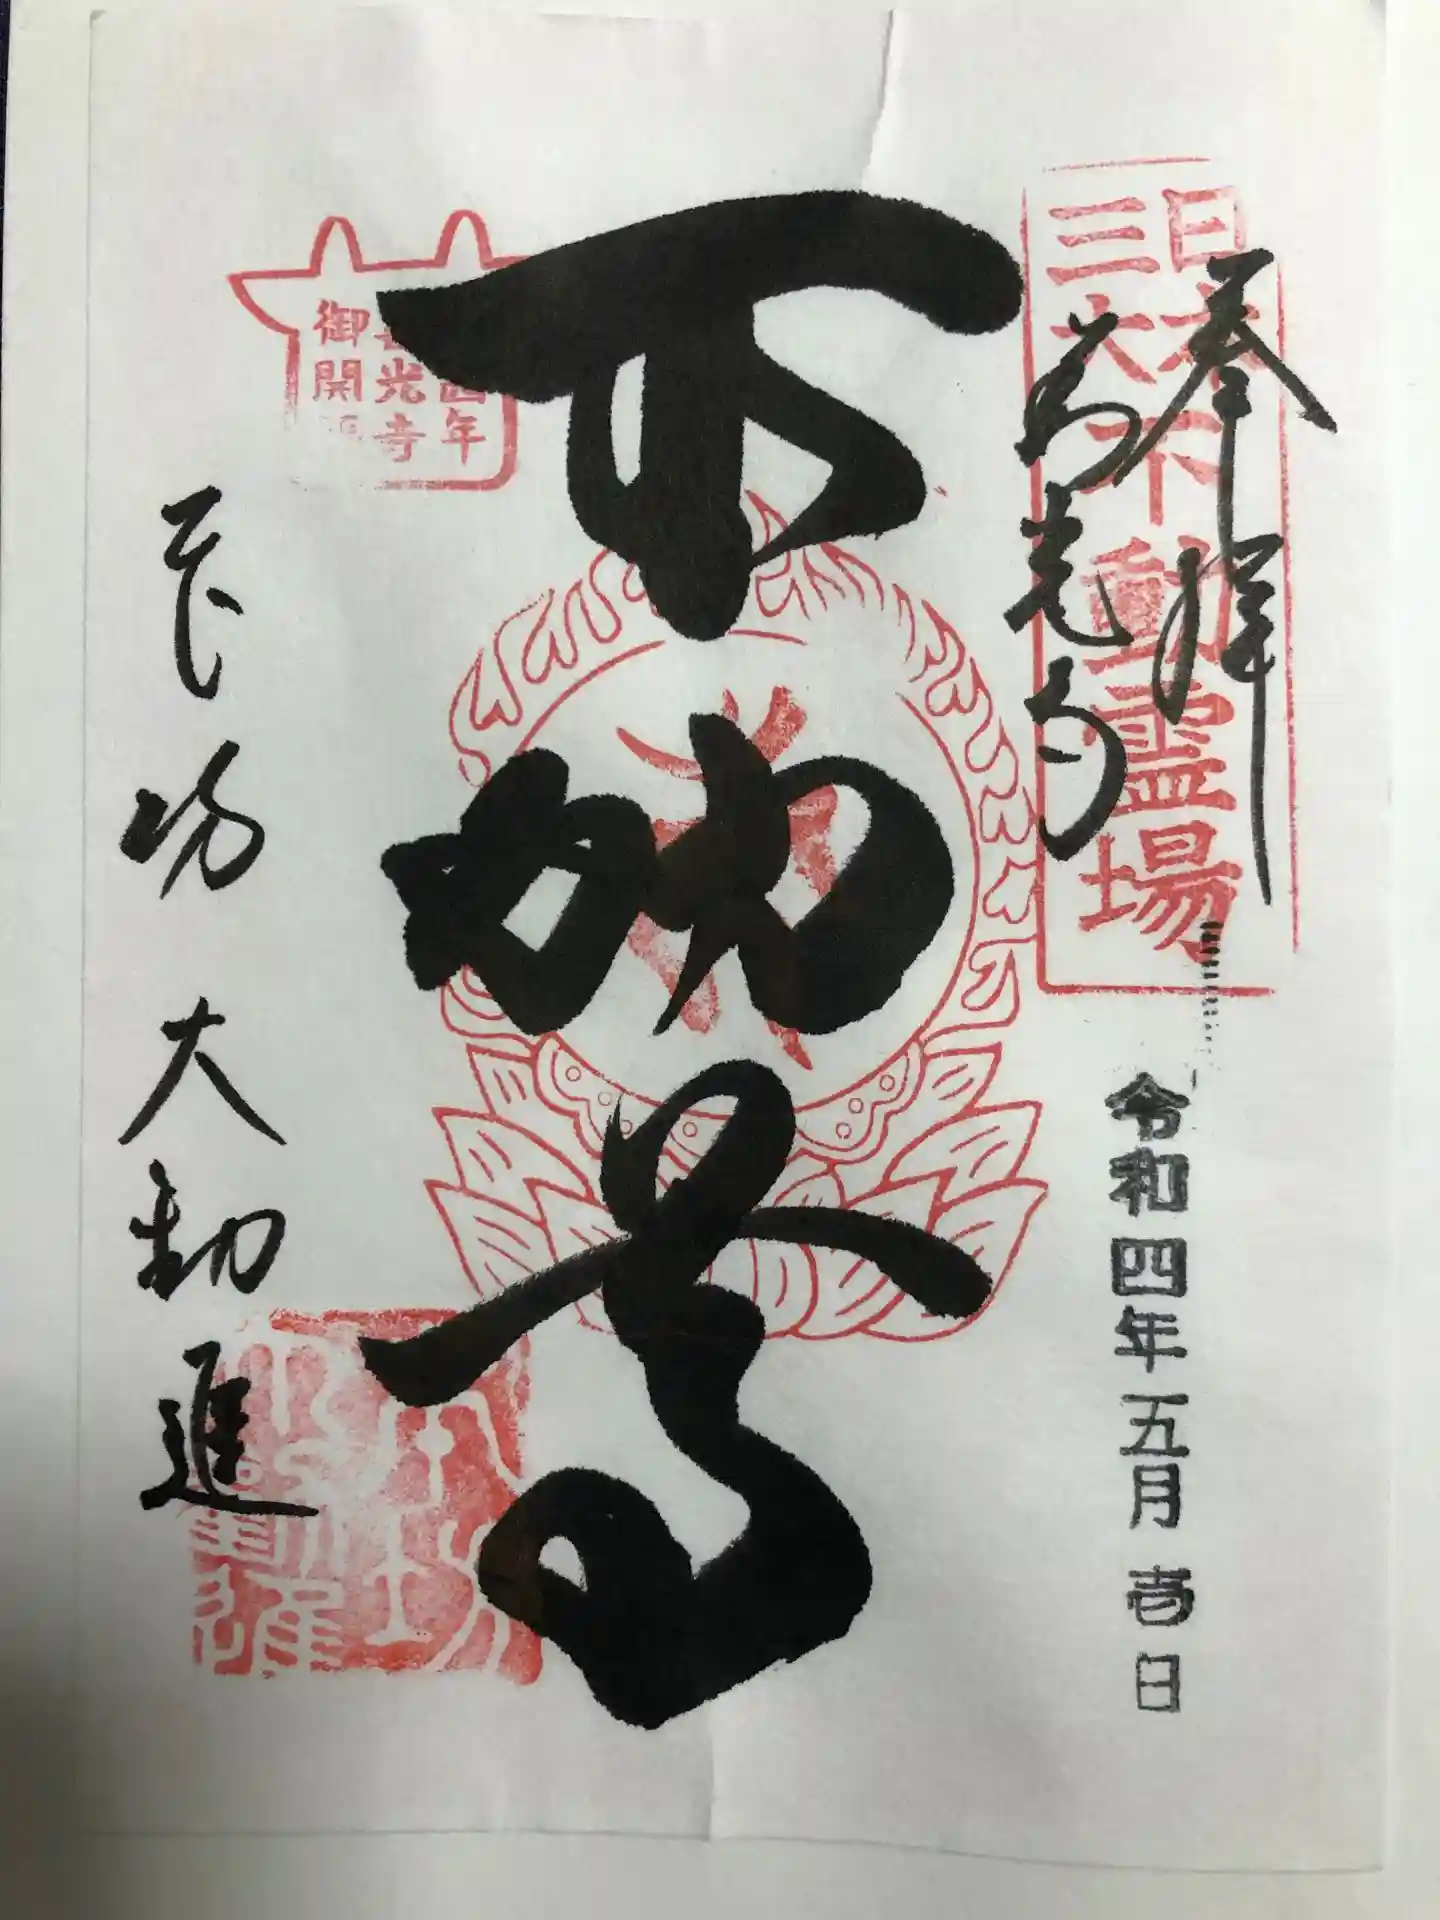 日本
三大不動霊場
奉拝
善光寺
令和四年五月壱日
不動尊
四年
善光寺
御開帳
本坊 大勧進